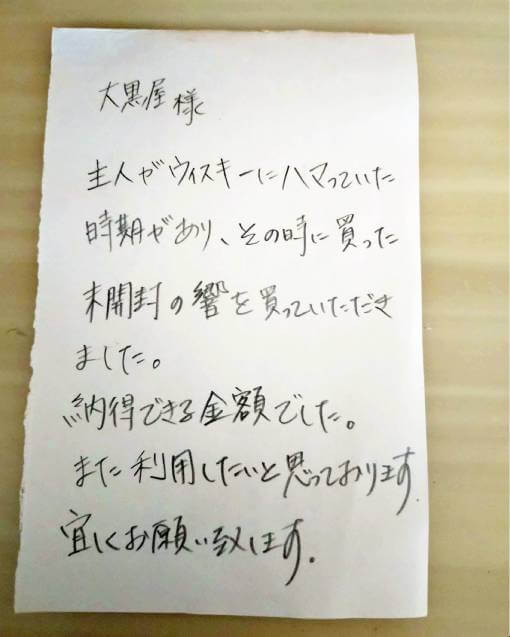 大黒屋様
主人がウィスキーにハマっていた
時期があり、その時に買った
未開封の響を買っていただき
ました。
納得できる金額でした。
また利用したいと思っております
宜しくお願い致します。